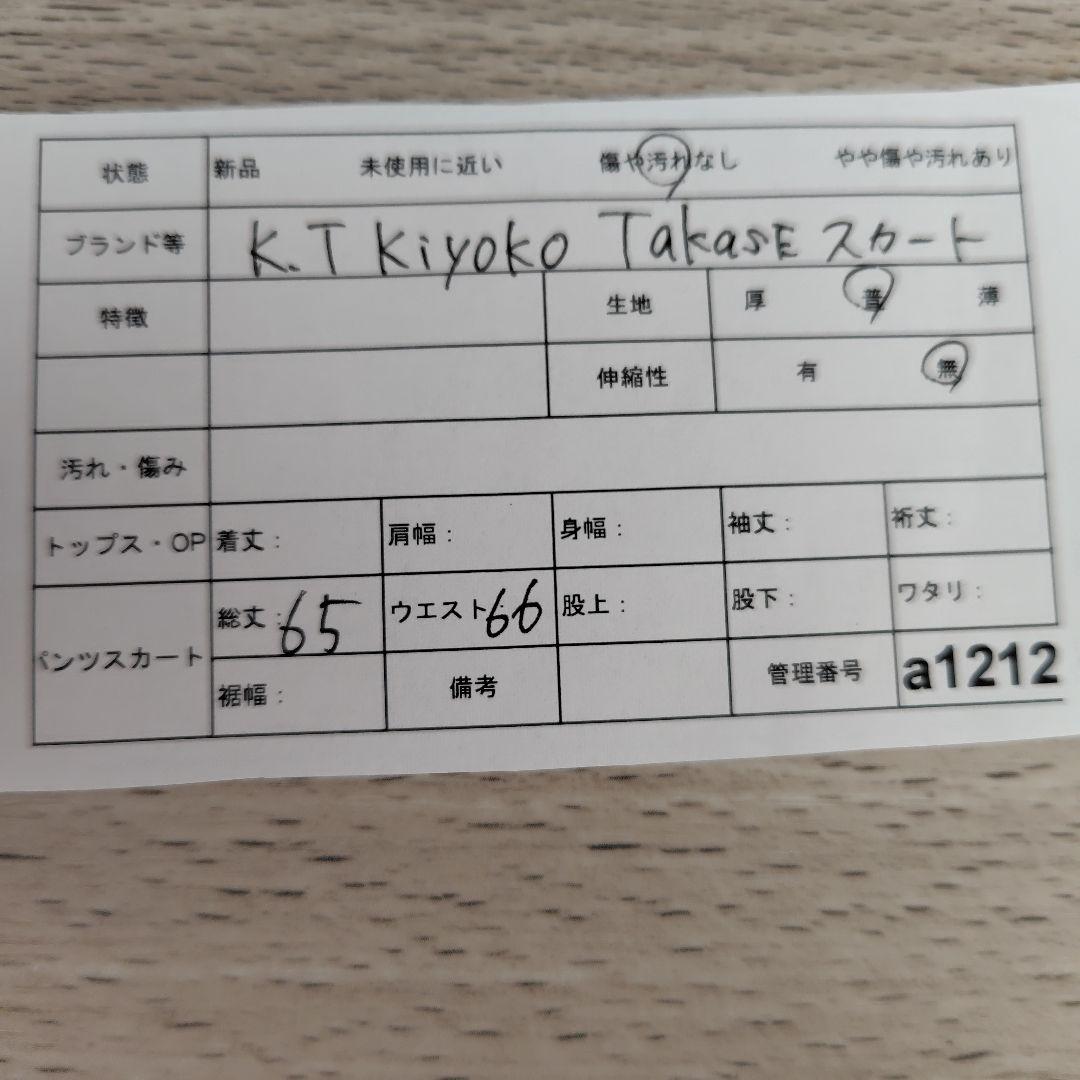 状態 新品 未使用に近い 傷や汚れなし やや傷や汚れあり
ブランド等 K.T Kiyoko TakasE スカート
特徴 生地 厚 普 薄
伸縮性 有 無
汚れ・傷み
トップス・OP 着丈: 肩幅: 身幅: 袖丈: 裄丈:
パンツスカート 総丈:65 ウエスト66 股上: 股下: ワタリ:
裾幅: 備考 管理番号 a1212